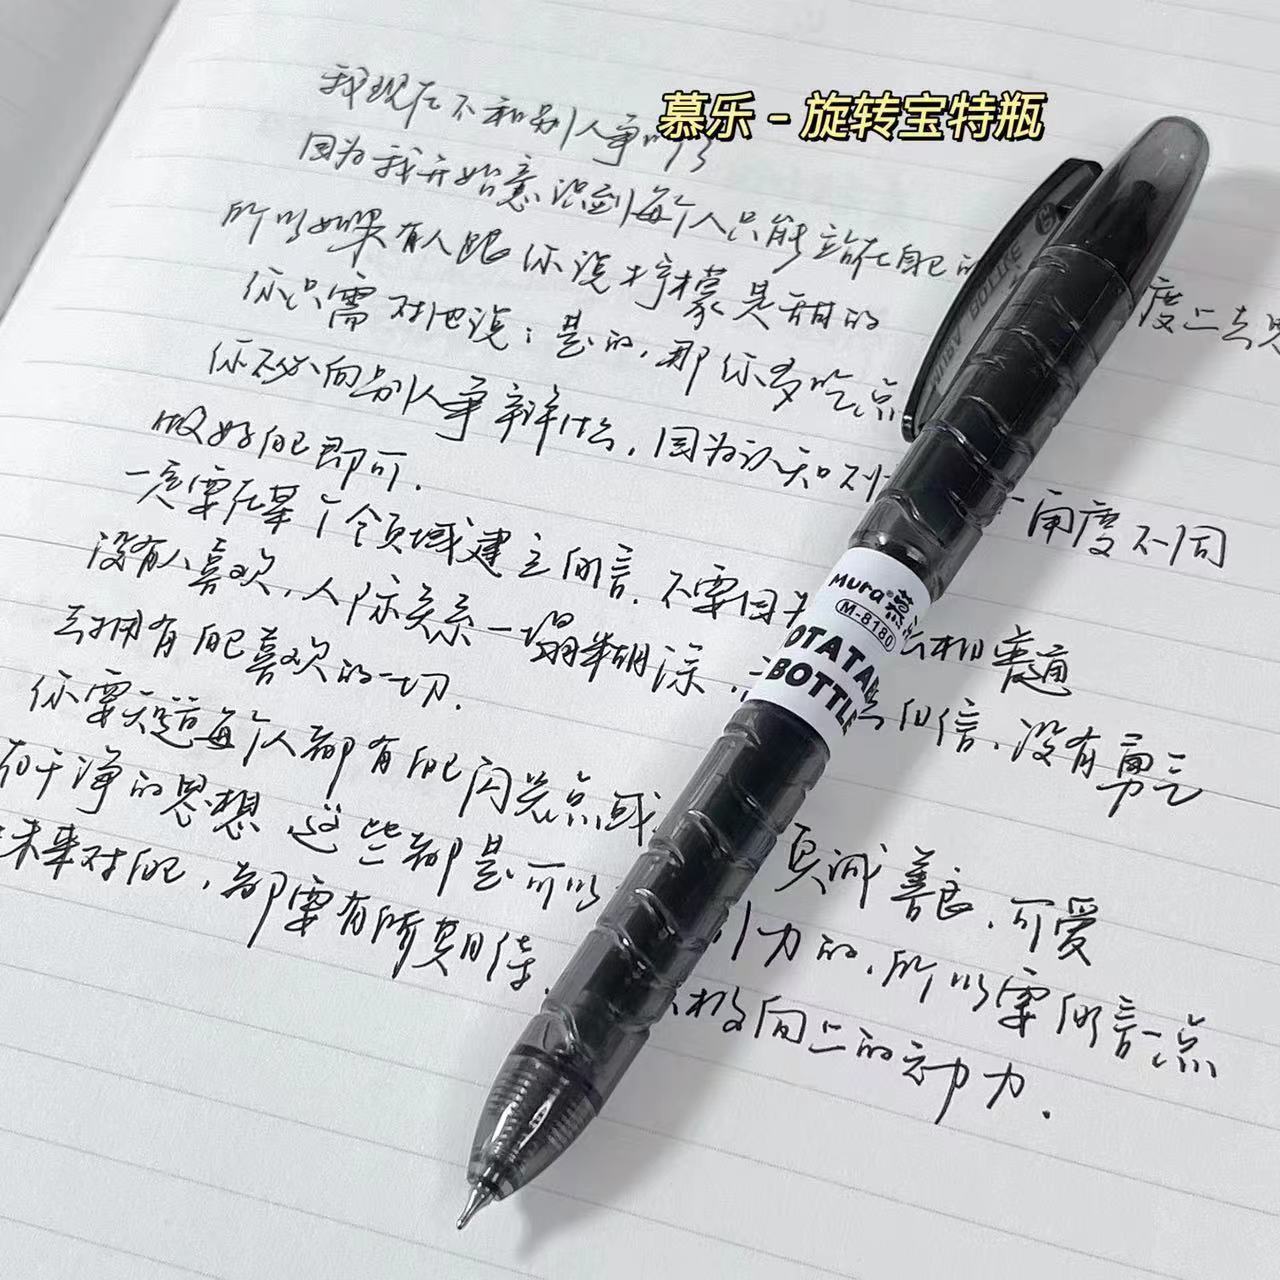 慕乐 - 旋转宝特瓶
我现在不和别人争吵了
因为我开始意识到每个人只能站在自己的 度上去思
所以如果有人跟你说柠檬是甜的
你只需对他说：是的，那你多吃点
你不必向别人争辩什么，因为认知不 角度不同
做好自己即可.
一定要在某个领域建立自信，不要因为 相普通
没有人喜欢，人际关系一塌糊涂， 自信，没有勇气
去拥有自己喜欢的一切.
你要知道每个人都有自己闪光点或 真诚善良、可爱
干净的思想 这些都是可以 引力的，所以要自信一点
未来对自己，都要有所期待. 极向上的动力.
Mura®慕
M-8180
OTATA
BOTTLE